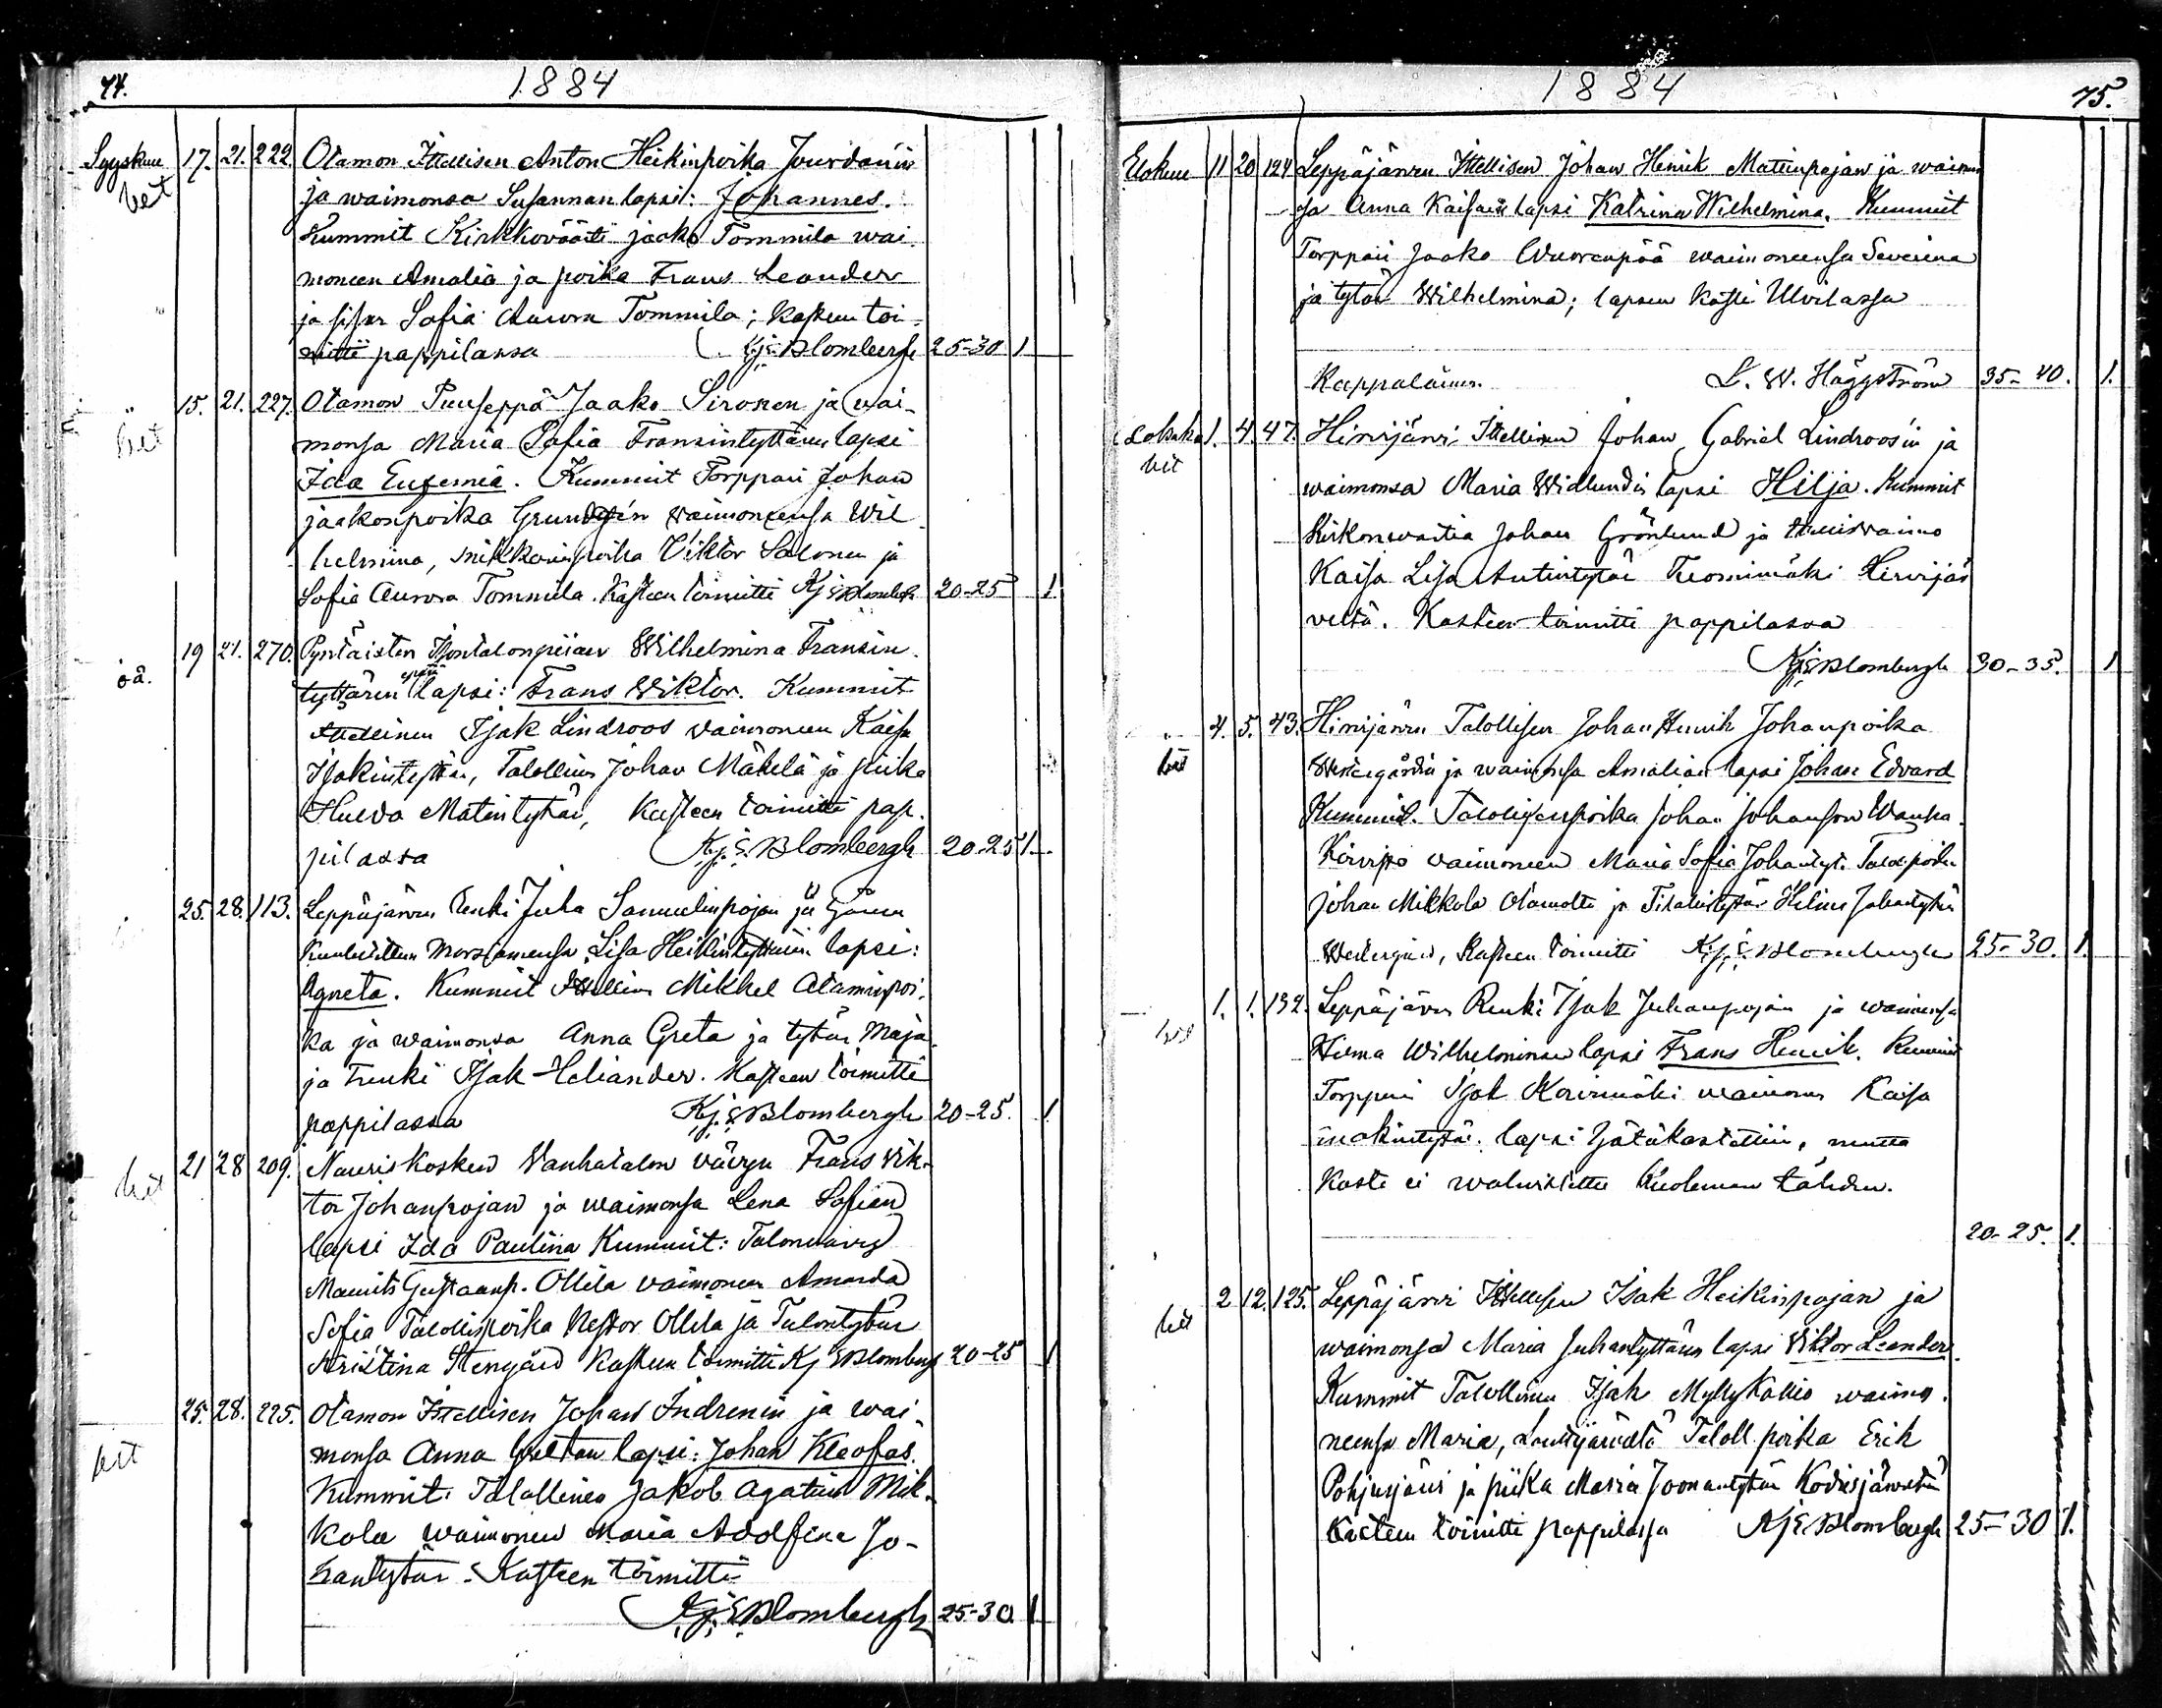 74.
1884
Syyskuu 17. 21. 222. Otamon Itsellisen Anton Heikinpoika Jourdanin
bet ja waimonsa Susannan lapsi: Johannes.
Kummit Kirkkoväärti jaako Tommila wai
moneen Amalia ja poika Frans Leander
ja sisar Sofia Aurora Tommila; kasteen toi-
mitti pappilassa Kj. E. Blombergh 25-30 1
" 15. 21. 227. Otamon Puuseppä Jaako Sironen ja wai-
bet monsa Maria Sofia Fransintyttären lapsi
Ida Eufemia. Kummit Torppari Johan
jaakonpoika waimoneensa Wil
helmina, Viktor Salonen ja
Sofia Aurora Tommila. Kasteen toimitti Kj E Blombergh 20-25 1
19 21. 270. Pyntäisten piian Wilhelmina Fransin
oä. tyttären lapsi: Frans Wiktor. Kummit
Itsellinen Isak Lindroos vaimoneen Kaisa
Isakintytär, Talollinen Johan Mäkelä ja piika
Matintytär, Kasteen toimitti pap.
pilassa Kj. E. Blombergh 20-25 1
25. 28. 113. Leppäjärven Renki Juha Samuelinpojan ja
morsiamensa Lisa Heikintyttären lapsi:
Agneta. Kummit Itsellinen Mikkel Adaminpoi-
ka ja waimonsa Anna Greta ja tytär Maja
ja renki Isak Heliander. Kasteen toimitti
pappilassa Kj. E Blombergh 20-25. 1
21 28 209. Nauriskosken Vanhatalon vävyn Frans Vik-
bet tor Johanpojan ja waimonsa Lena Sofian
lapsi Ida Paulina Kummit: Talonvävy
Maurits Gustaanp. Ollila vaimoneen Amanda
Sofia Talollispoika Nestor Ollila ja Talontytär
Kristina Stengård Kasteen toimitti Kj E Blombergh 20-25 1
25. 28. 225. Otamon Itsellisen Johan Indrenin ja wai-
bet monsa Anna Gretan lapsi: Johan Kleofas.
Kummit: Talollinen Jakob Agatius Mik-
kola waimoneen Maria Adolfina Jo-
hantytär. Kasteen toimitti
Kj. E Blombergh 25-30. 1
1884
75.
Elokuu 11 20 124 Leppäjärven Itsellisen Johan Henrik Matinpojan ja waimon
sa Anna Kaisan lapsi Katrina Wilhelmina. Kummit
Torppari Jaako Wuorenpää waimoneensa Severina
ja tytär Wilhelmina; lapsen kasti Ulvilassa
Kappalainen. L. W. Häggström 35-40. 1.
Lokaku 1. 4. 47. Hirvijärvi Itsellinen Johan Gabriel Lindroosin ja
bet waimonsa Maria Widlundin lapsi Hilja. Kummit
Kirkonwartia Johan Grönlund ja waimo
Kaisa Lisa Antintytär Tuomimäki Hirvijär
veltä. Kasteen toimitti pappilassa
Kj E Blombergh 30-35. 1
" 4. 5. 43. Hirvijärven Talollisen Johan Henrik Johanpoika
bet Westergårdin ja waimonsa Amalian lapsi Johan Edvard
Kummit. Talollisenpoika Johan Johanson Wanha
vaimoneen Maria Sofia Johantyt. Talol. poika
Johan Mikkola Otamolta ja Hilma Johantytär
Westergård, Kasteen toimitti Kj. E. Blombergh 25-30. 1.
1. 1. 132. Leppäjärven Renki Isak Juhanpojan ja waimonsa
Wilhelminan lapsi Frans Henrik. Kummit
Torppari Isak Korvimäki waimonsa Kaisa
Isakintytär. lapsi hätäkastettiin, mutta
kaste ei wahvistettu kuoleman tähden.
20-25. 1.
2 12. 125. Leppäjärvi Itsellisen Isak Heikinpojan ja
bet waimonsa Maria Juhantyttären lapsi Viktor Leander.
Kummit Talollinen Isak Myllykallio waimo-
neensa Maria, Taloll. poika Erik
Pohjusjärvi ja piika Maria Joonantytär Kodisjärveltä
Kasteen toimitti pappilassa Kj E Blombergh 25-30 1.